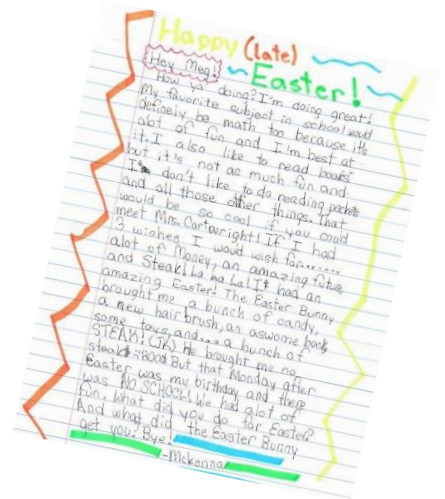 Happy (late)
Easter!
Hey Meg!
How ya' doing? I'm doing great!
My favorite subject in school would
definely be math too because it's
alot of fun and I'm best at
it. I also like to read books
but it's not as much fun and
I don't like to do reading packets
and all those other things. That
would be so cool if you could
meet Mrs. Cartwright! If I had
3 wishes I would wish for........
alot of Money, an amazing future,
and Steak! ha ha ha! I had an
amazing Easter! The Easter Bunny
brought me a bunch of candy,
a new hair brush, an aswome book,
some toys, and.... a bunch of
STEAK! (JK) He brought me no
steak But that Monday after
Easter was my birthday and there
was NO SCHOOL! We had alot of
fun. What did you do for Easter?
And what did the Easter Bunny
get you? Bye!
-Mckenna